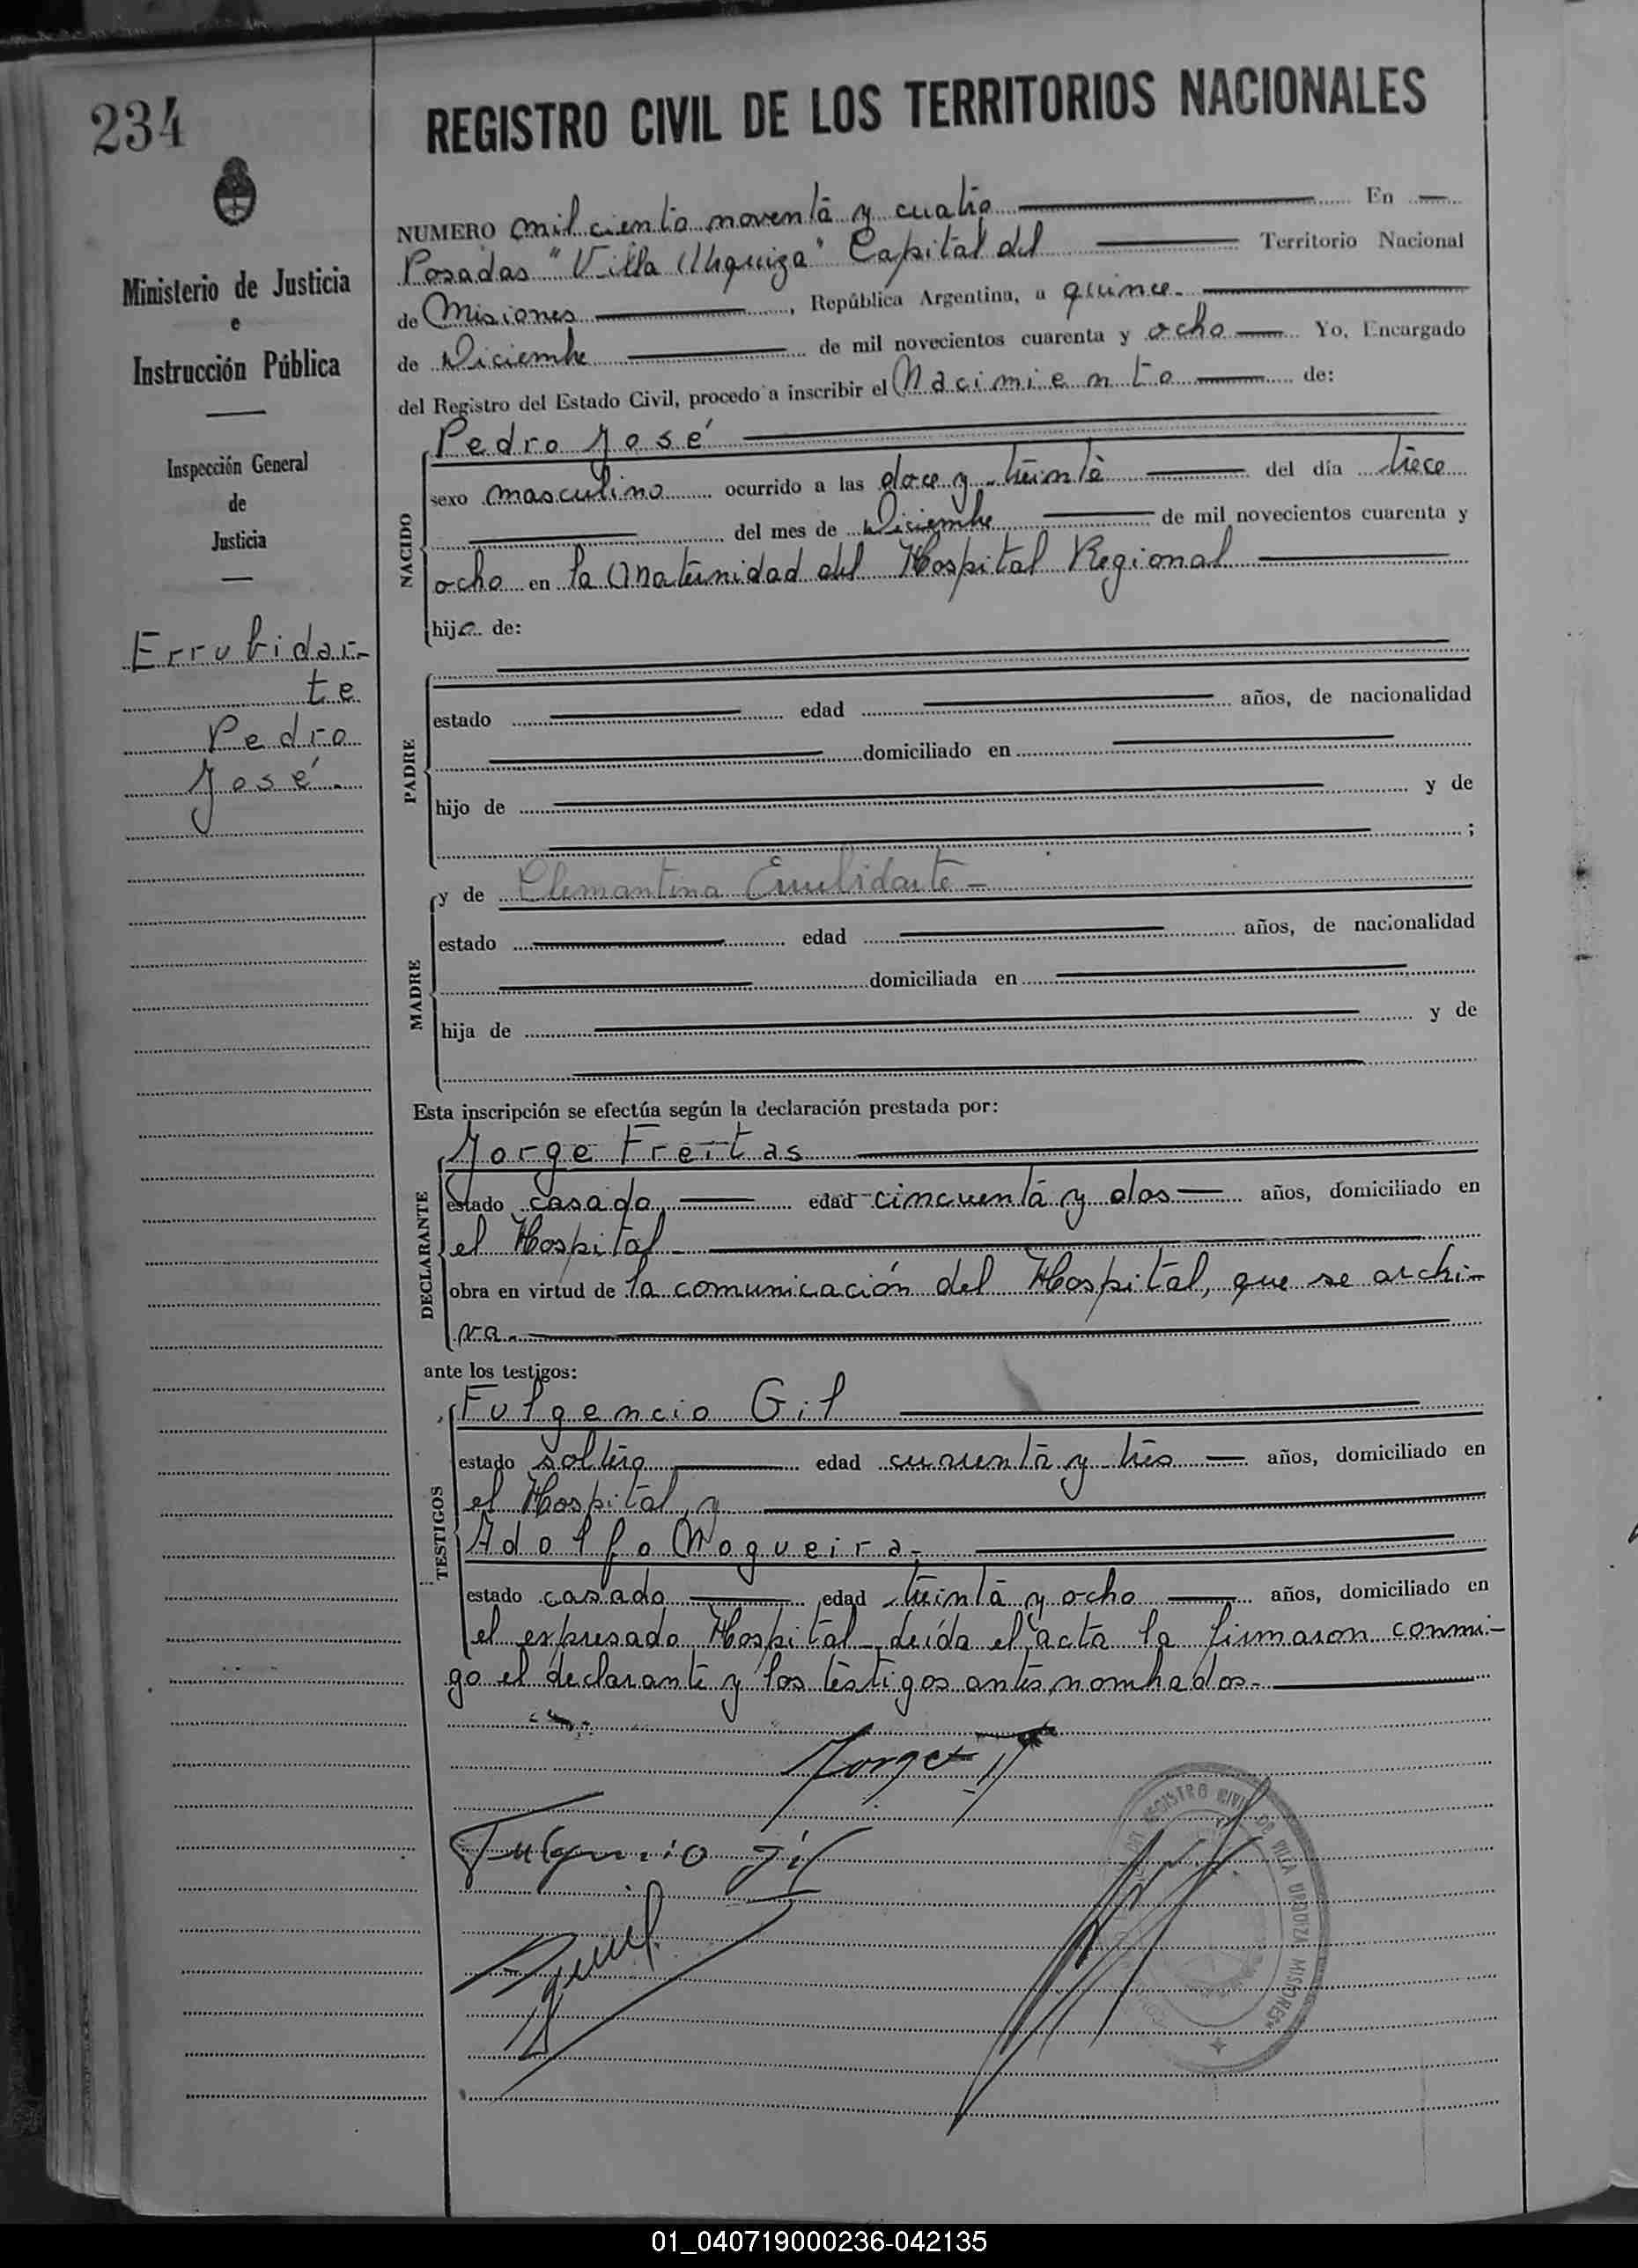 234
REGISTRO CIVIL DE LOS TERRITORIOS NACIONALES
Ministerio de Justicia
e
Instrucción Pública
Inspección General
de
Justicia
Errubidar-
te
Pedro
José.
NUMERO mil ciento noventa y cuatro En
Posadas "Villa Urquiza" Capital del Territorio Nacional
de Misiones, República Argentina, a quince
de Diciembre de mil novecientos cuarenta y ocho Yo, Encargado
del Registro del Estado Civil, procedo a inscribir el Nacimiento de:
NACIDO
Pedro José
sexo masculino ocurrido a las doce y treinta del día trece
del mes de Diciembre de mil novecientos cuarenta y
ocho en la Maternidad del Hospital Regional
hijo de:
PADRE
estado edad años, de nacionalidad
domiciliado en
hijo de y de
;
MADRE
y de Clemantina Errubidarte -
estado edad años, de nacionalidad
domiciliada en
hija de y de
Esta inscripción se efectúa según la declaración prestada por:
DECLARANTE
Jorge Freitas
estado casado edad cincuenta y dos años, domiciliado en
el Hospital
obra en virtud de la comunicación del Hospital, que se archi-
va.
ante los testigos:
TESTIGOS
Fulgencio Gil
estado soltero edad cuarenta y tres años, domiciliado en
el Hospital y
Adolfo Nogueira.
estado casado edad treinta y ocho años, domiciliado en
el expresado Hospital leída el acta la firmaron conmi-
go el declarante y los testigos antes nombrados.
Jorge
Fulgencio Gil
REGISTRO CIVIL DE VILLA URQUIZA MISIONES
01_040719000236-042135